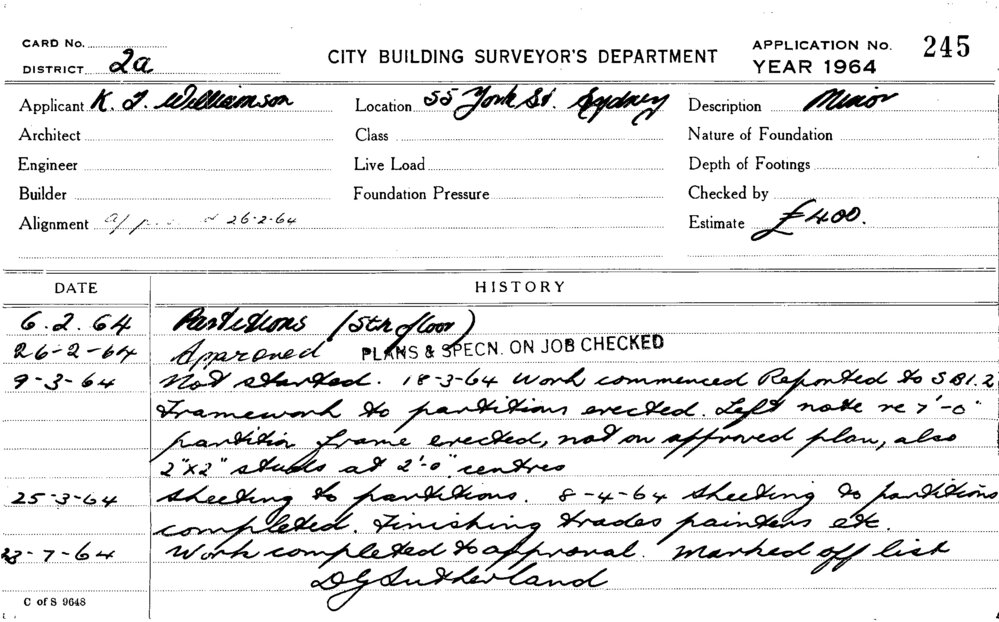 CARD No.
DISTRICT 2a
CITY BUILDING SURVEYOR'S DEPARTMENT
APPLICATION No. 245
YEAR 1964
Applicant K. J. Williamson
Location 55 York St. Sydney
Description Minor
Architect
Class
Nature of Foundation
Engineer
Live Load
Depth of Footings
Builder
Foundation Pressure
Checked by
Alignment 26-2-64
Estimate £400.
DATE HISTORY
6.2.64 Partitions (5th floor)
26-2-64 Approved PLANS & SPECN. ON JOB CHECKED
9-3-64 Not started. 18-3-64 Work commenced Reported to SBI.2
Framework to partitions erected. Left note re 7'-0"
partition frame erected, not on approved plan, also
2"x2" studs at 2'-0" centres
25-3-64 Sheeting to partitions. 8-4-64 Sheeting to partitions
completed. Finishing trades painters etc.
23-7-64 Work completed to approval. Marked off list
DG Sutherland
C of S 9648